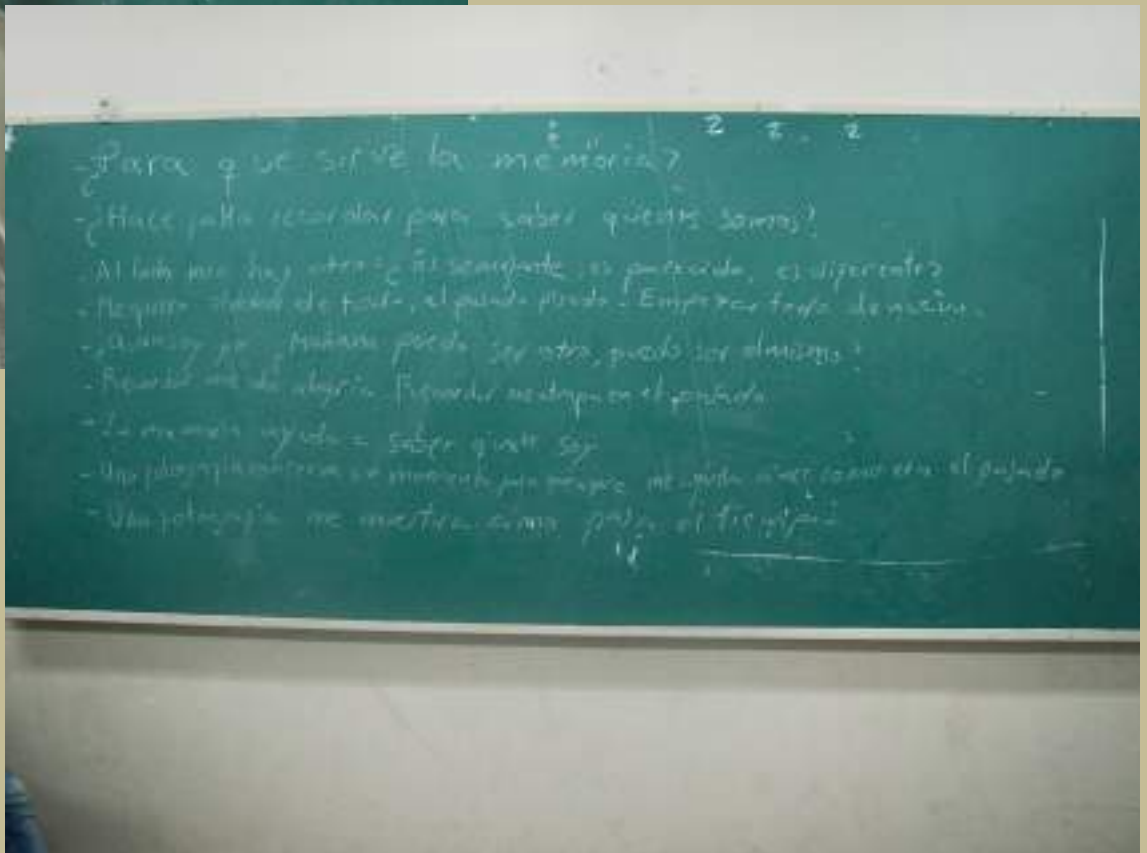 -¿Para que sirve la memoria?
-¿Hace falta recordar para saber quienes somos?
-Al lado mio hay otro ¿es semejante, es parecido, es diferente?
- de todo, el pasado pisado. Empezar todo de nuevo.
- Mañana puedo ser otro, puedo ser el mismo?
-Recordar me da alegria. Recordar me atrapa en el pasado
-La memoria ayuda a saber quien soy
-Una fotografia conserva un momento para siempre, me ayuda a ver como era el pasado
-Una fotografia me muestra como pasa el tiempo